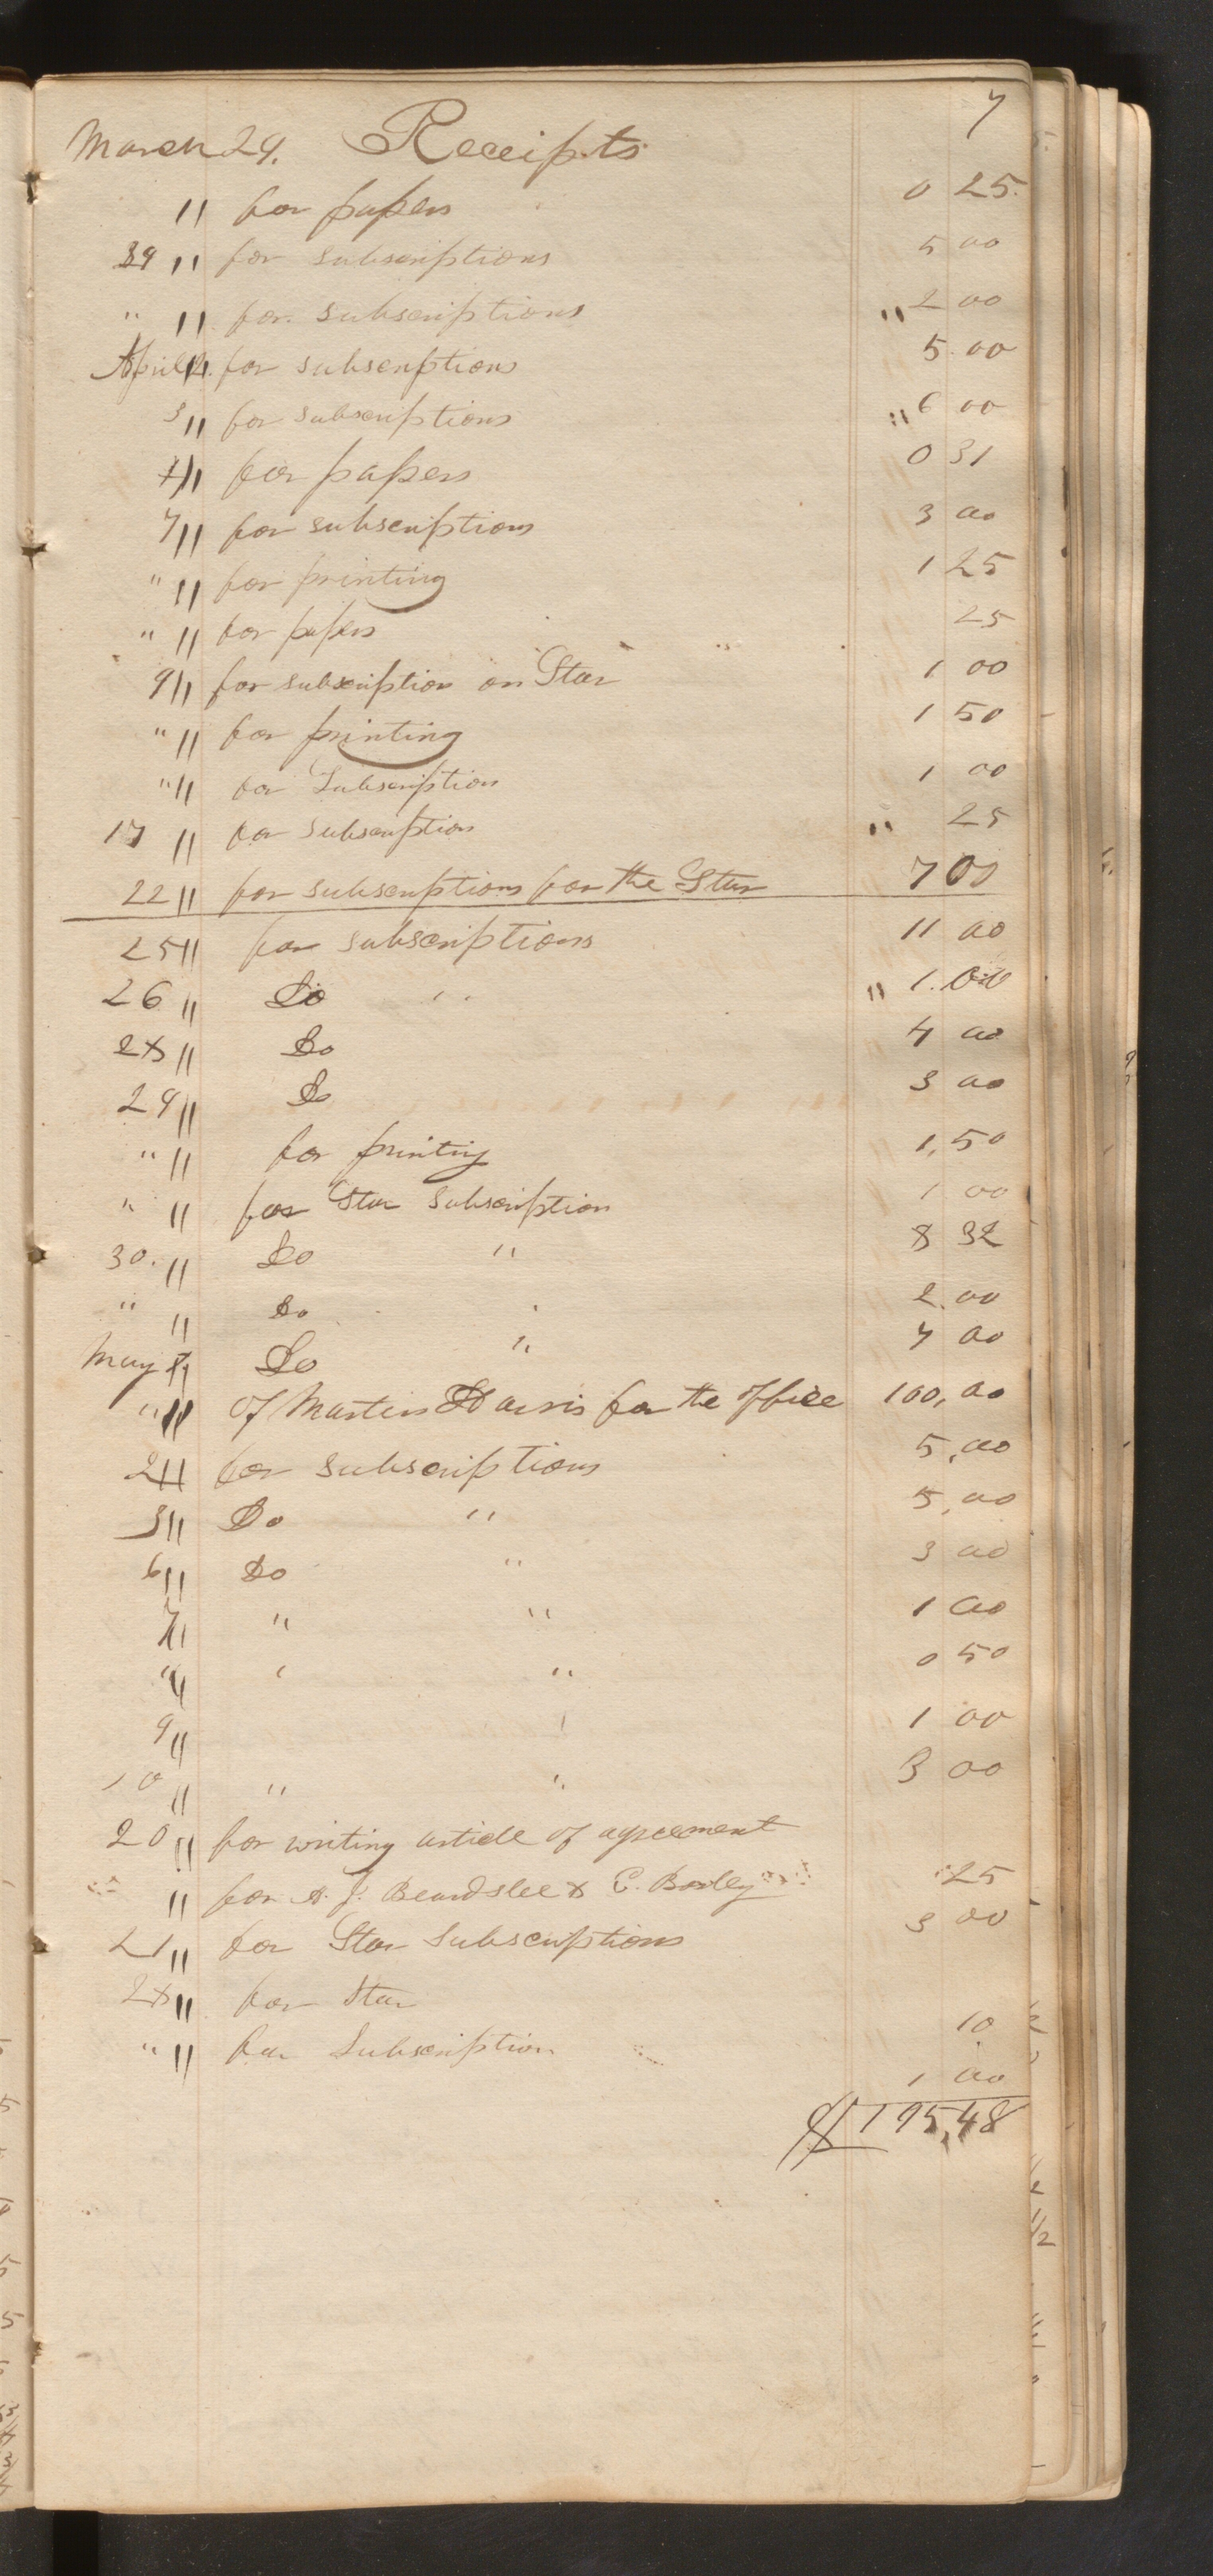 7
March 29. Receipts
" for papers 0 25.
29 " for subscriptions 5 00
" " for subscriptions " 2 00
April 2. for subscriptions 5.00
3 " for subscriptions " 6 00
4 " for papers 0 31
7 " for subscriptions 3 00
" " for printing 1 25
" " for papers 25
9 " for subscription on Star 1 00
" " for printing 1 50
" " for Subscription 1 00
17 " for subscription " 25
22 " for subscriptions for the Star 7 00
25 " for subscriptions 11 00
26 " Do " " 1.00
28 " Do 4 00
29 " Do 3 00
" " for printing 1,50
" " for Star Subscription 1 00
30. " Do " 8 32
" " Do 2.00
May 1 " Do " 7 00
" " Of Martin Harris for the office 100,00
2 " for subscriptions 5,00
3 " Do " 5,00
6 " Do " 3 00
7 " " " 1 00
" " " " 0 50
9 " 1 00
10 " " " 3 00
20 " for writing article of agreement
" for A. J. Beardslee & E. Boxley 25
21 " for Star Subscriptions 3 00
28 " for Star 10
" " for Subscription 1 00
$195,48